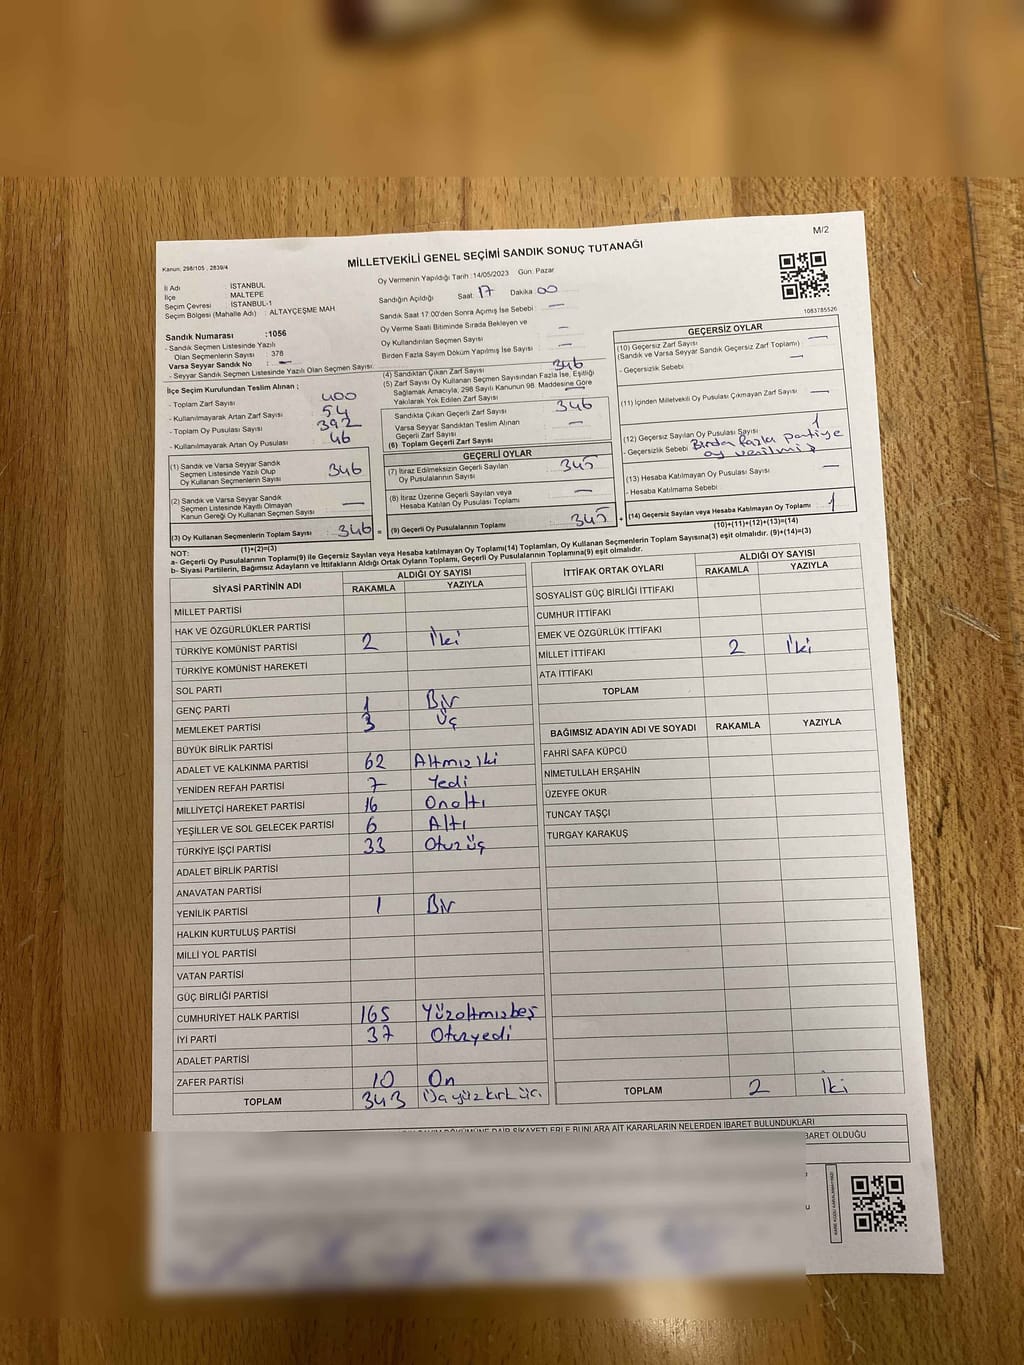 M/2
Kanun: 298/105 , 2839/4
MİLLETVEKİLİ GENEL SEÇİMİ SANDIK SONUÇ TUTANAĞI
İl Adı : İSTANBUL
İlçe : MALTEPE
Seçim Çevresi : İSTANBUL-1
Seçim Bölgesi (Mahalle Adı) : ALTAYÇEŞME MAH
Oy Vermenin Yapıldığı Tarih :14/05/2023 Gün: Pazar
Sandığın Açıldığı Saat: 17 Dakika 00
Sandık Saat 17:00'den Sonra Açımış İse Sebebi : —
Oy Verme Saati Bitiminde Sırada Bekleyen ve
Oy Kullandırılan Seçmen Sayısı : —
Birden Fazla Sayım Döküm Yapılmış İse Sayısı : —
1083785526
Sandık Numarası :1056
- Sandık Seçmen Listesinde Yazılı
Olan Seçmenlerin Sayısı : 378
Varsa Seyyar Sandık No : —
- Seyyar Sandık Seçmen Listesinde Yazılı Olan Seçmen Sayısı:
İlçe Seçim Kurulundan Teslim Alınan ;
- Toplam Zarf Sayısı : 400
- Kullanılmayarak Artan Zarf Sayısı : 54
- Toplam Oy Pusulası Sayısı : 392
- Kullanılmayarak Artan Oy Pusulası : 46
(1) Sandık ve Varsa Seyyar Sandık
Seçmen Listesinde Yazılı Olup
Oy Kullanan Seçmen Sayısı : 346
(2) Sandık ve Varsa Seyyar Sandık
Seçmen Listesinde Kayıtlı Olmayan
Kanun Gereği Oy Kullanan Seçmen Sayısı : —
(3) Oy Kullanan Seçmenlerin Toplam Sayısı : 346 =
(1)+(2)=(3)
(4) Sandıktan Çıkan Zarf Sayısı : 346
(5) Zarf Sayısı Oy Kullanan Seçmen Sayısından Fazla İse, Eşitliği
Sağlamak Amacıyla, 298 Sayılı Kanunun 98. Maddesine Göre
Yakılarak Yok Edilen Zarf Sayısı : —
Sandıkta Çıkan Geçerli Zarf Sayısı : 346
Varsa Seyyar Sandıktan Teslim Alınan
Geçerli Zarf Sayısı : —
(6) Toplam Geçerli Zarf Sayısı :
GEÇERLİ OYLAR
(7) İtiraz Edilmeksizin Geçerli Sayılan
Oy Pusulalarının Sayısı : 345
(8) İtiraz Üzerine Geçerli Sayılan veya
Hesaba Katılan Oy Pusulası Toplamı : —
(9) Geçerli Oy Pusulalarının Toplamı : 345 +
GEÇERSİZ OYLAR
(10) Geçersiz Zarf Sayısı : —
(Sandık ve Varsa Seyyar Sandık Geçersiz Zarf Toplamı)
- Geçersizlik Sebebi : —
(11) İçinden Milletvekili Oy Pusulası Çıkmayan Zarf Sayısı : —
(12) Geçersiz Sayılan Oy Pusulası Sayısı : 1
- Geçersizlik Sebebi : Birden fazla partiye
oy verilmiş
(13) Hesaba Katılmayan Oy Pusulası Sayısı : —
- Hesaba Katılmama Sebebi :
(14) Geçersiz Sayılan veya Hesaba Katılmayan Oy Toplamı : 1
(10)+(11)+(12)+(13)=(14)
NOT:
a- Geçerli Oy Pusulalarının Toplamı(9) ile Geçersiz Sayılan veya Hesaba katılmayan Oy Toplamı(14) Toplamları, Oy Kullanan Seçmenlerin Toplam Sayısına(3) eşit olmalıdır. (9)+(14)=(3)
b- Siyasi Partilerin, Bağımsız Adayların ve İttifakların Aldığı Ortak Oyların Toplamı, Geçerli Oy Pusulalarının Toplamına(9) eşit olmalıdır.
SİYASİ PARTİNİN ADI ALDIĞI OY SAYISI
RAKAMLA YAZIYLA
MİLLET PARTİSİ
HAK VE ÖZGÜRLÜKLER PARTİSİ
TÜRKİYE KOMÜNİST PARTİSİ 2 İki
TÜRKİYE KOMÜNİST HAREKETİ
SOL PARTİ
GENÇ PARTİ 1 Bir
MEMLEKET PARTİSİ 3 Üç
BÜYÜK BİRLİK PARTİSİ
ADALET VE KALKINMA PARTİSİ 62 Altmış iki
YENİDEN REFAH PARTİSİ 7 Yedi
MİLLİYETÇİ HAREKET PARTİSİ 16 Onaltı
YEŞİLLER VE SOL GELECEK PARTİSİ 6 Altı
TÜRKİYE İŞÇİ PARTİSİ 33 Otuzüç
ADALET BİRLİK PARTİSİ
ANAVATAN PARTİSİ
YENİLİK PARTİSİ 1 Bir
HALKIN KURTULUŞ PARTİSİ
MİLLİ YOL PARTİSİ
VATAN PARTİSİ
GÜÇ BİRLİĞİ PARTİSİ
CUMHURİYET HALK PARTİSİ 165 Yüzaltmışbeş
İYİ PARTİ 37 Otuzyedi
ADALET PARTİSİ
ZAFER PARTİSİ 10 On
TOPLAM 343 Üçyüzkırküç
İTTİFAK ORTAK OYLARI ALDIĞI OY SAYISI
RAKAMLA YAZIYLA
SOSYALİST GÜÇ BİRLİĞİ İTTİFAKI
CUMHUR İTTİFAKI
EMEK VE ÖZGÜRLÜK İTTİFAKI
MİLLET İTTİFAKI 2 İki
ATA İTTİFAKI
TOPLAM
BAĞIMSIZ ADAYIN ADI VE SOYADI RAKAMLA YAZIYLA
FAHRİ SAFA KÜPCÜ
NİMETULLAH ERŞAHİN
ÜZEYFE OKUR
TUNCAY TAŞÇI
TURGAY KARAKUŞ
TOPLAM 2 İki
DÖKÜMÜNE DAİR ŞİKAYETLERLE BUNLARA AİT KARARLARIN NELERDEN İBARET BULUNDUKLARI
BARET OLDUĞU